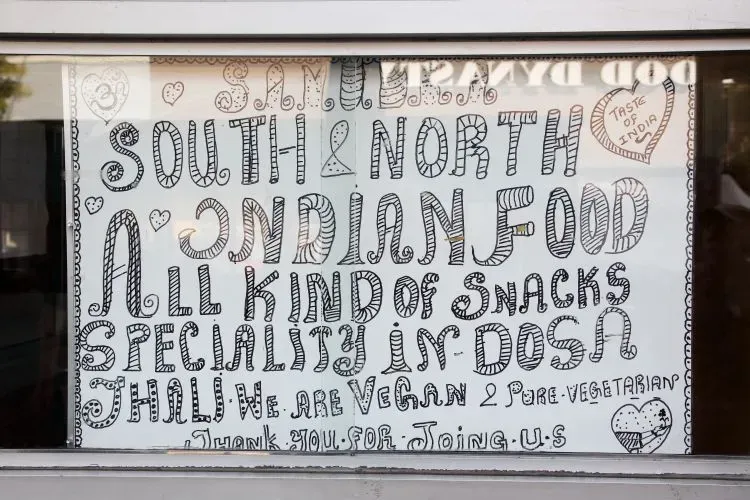 ॐ
SAMUDRA
TASTE OF INDIA
SOUTH & NORTH
INDIAN FOOD
ALL KIND OF SNACKS
SPECIALITY IN DOSA
THALI · WE ARE VEGAN & PURE · VEGETARIAN
THANK YOU · FOR · JOING · U · S